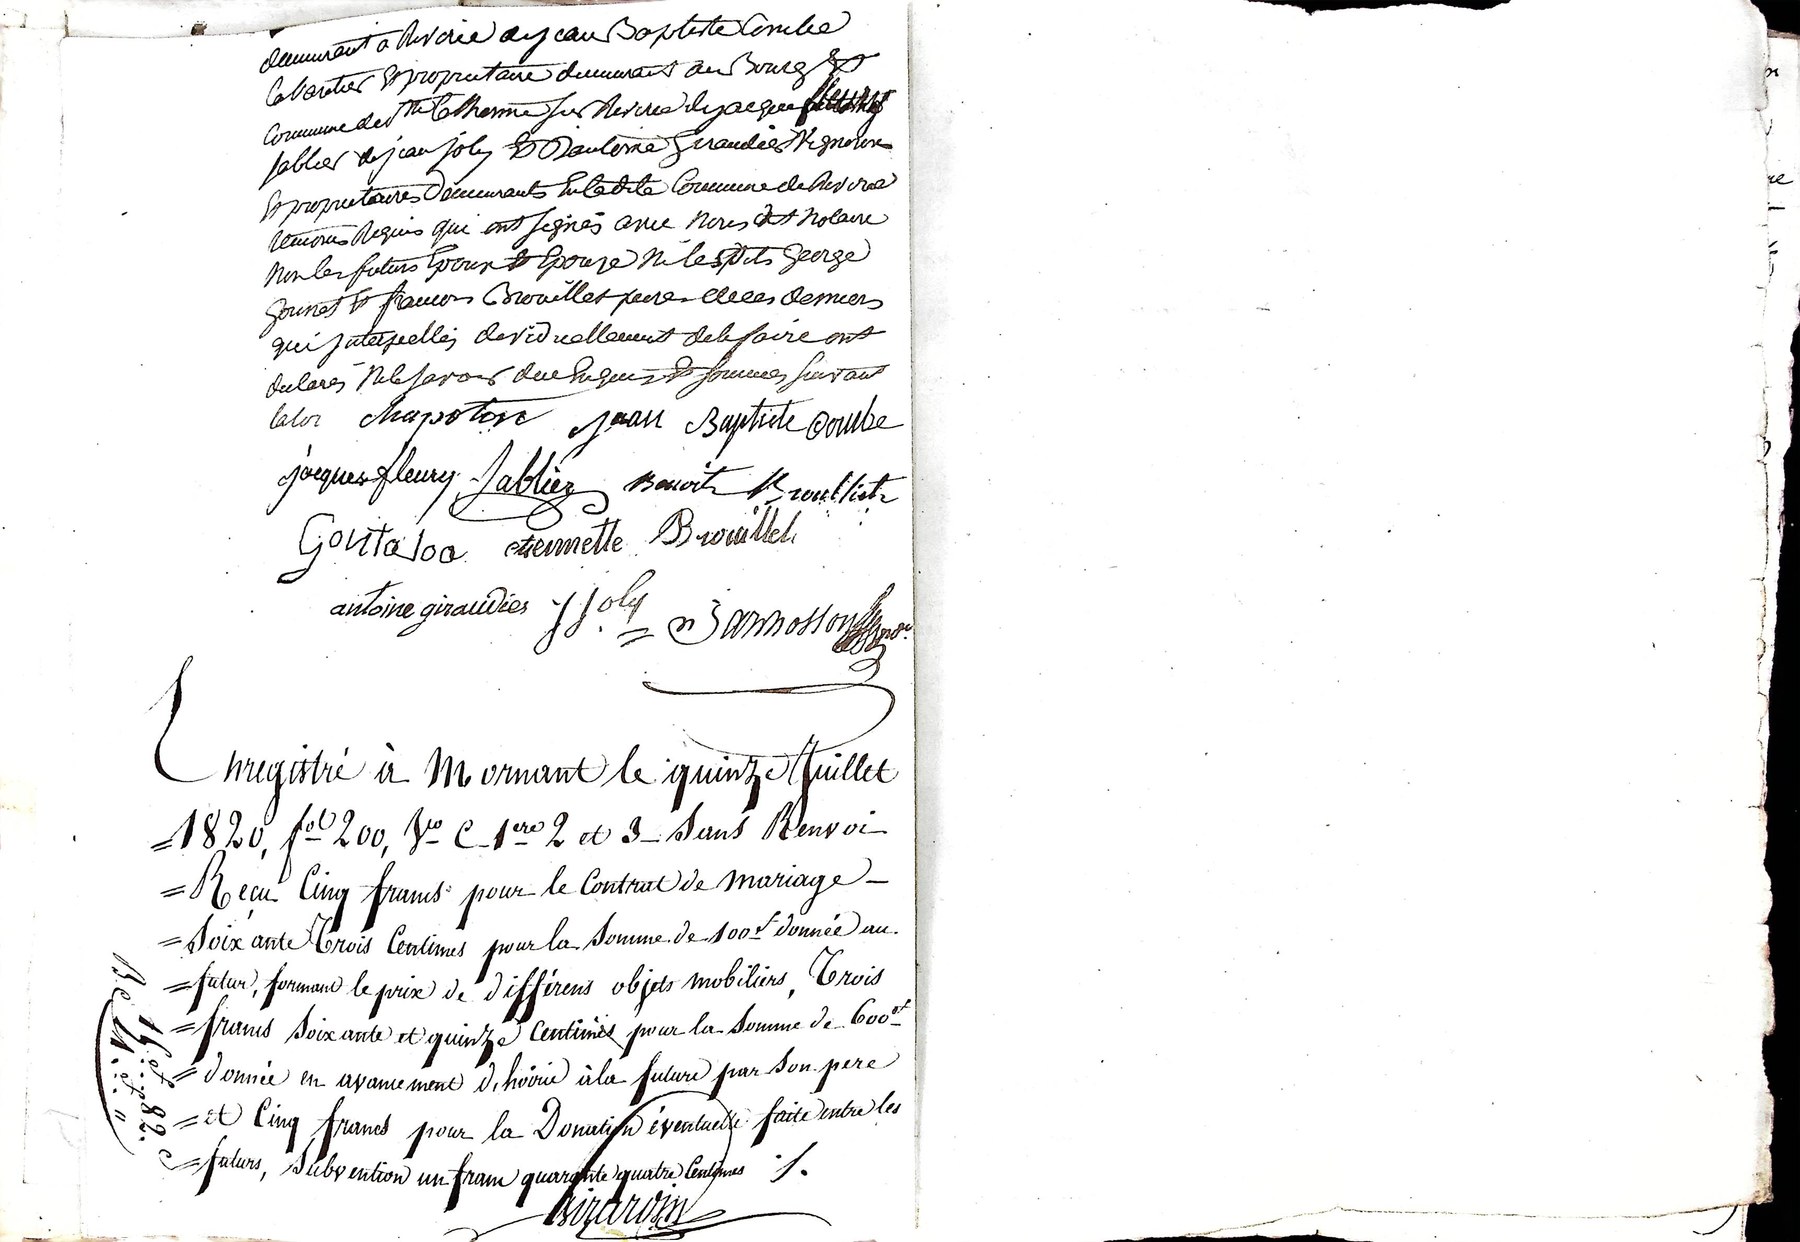 demeurant a Riverie de jean Baptiste Combe
Cabartier & proprietaire demeurant au Bourg &
Commune de Ste Catherine sur Riverie de jacque
sablier de jean joly & D'antoine Giraudier Vigneron
& proprietaires Demeurants En ladite Commune de Riverie
temoins Requis qui ont signés avec Nous dit Notaire
Non les futurs Epoux & Epouse Ni lesdits George
& francois Brouillet peres de ces derniers
qui interpellés de le faire ont
declarés Ne le savoir de ce Enquis & sommes suivant
la loi chapoton jean Baptiste Combe
jacques fleury Sablier Benoit
etiennette Brouillet
antoine giraudier J Joly
Enregistré à Mornant le quinze Juillet
1820, fol 200, Vo C 1ere 2 et 3 Sans Renvoi
Reçu Cinq francs pour le Contrat de mariage
Soixante Trois Centimes pour la Somme de 100f donnée au
futur, formant le prix de différens objets mobiliers, Trois
francs Soixante et quinze Centimes pour la Somme de 600f
donnée en avancement d'hoirie à la future par Son pere
et Cinq francs pour la Donation éventuelle faite entre les
futurs, Subvention un franc quarante quatre Centimes
Girardin
15f 82c